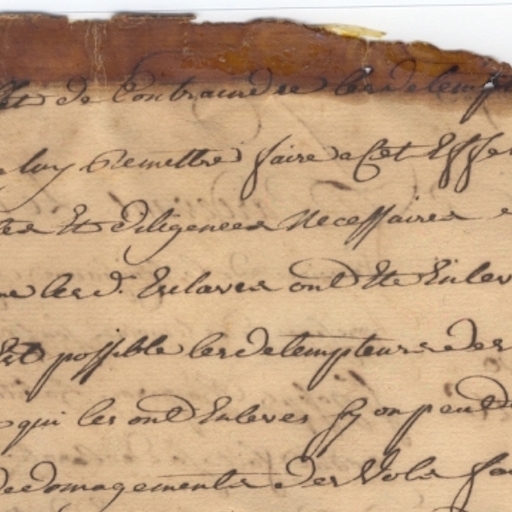 et de Contraindre les detempt
luy Remettre faire a Cet Effe
tes Et diligences necessaires
les d. Esclaves ont Ete Enlev
Est possible les detempteurs des
qui les ont Enleves sy on peut
dedomagements des Vols fa